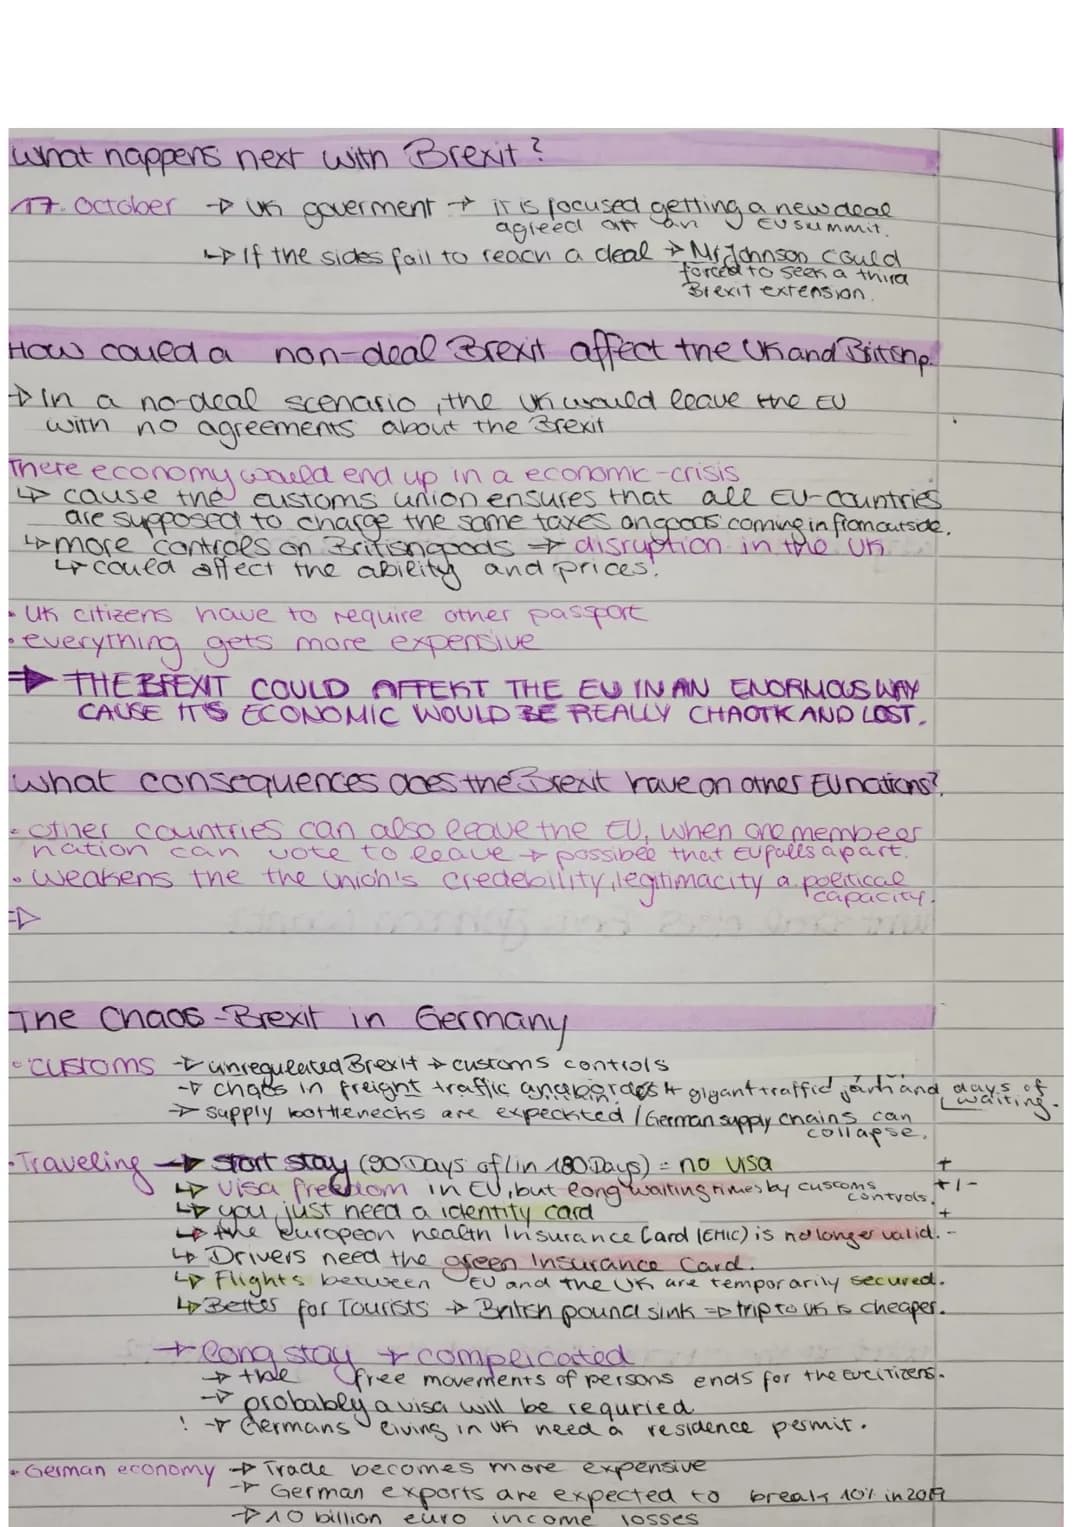 What happens next with Brexit?
17. October → UK goverment → it is focused getting a new deal
agreed at an EU summit.
↳ If the sides fail to reach a deal → Mr Johnson could
forced to seek a third
Brexit extension.
How could a non-deal Brexit affect the UK and British p.
→ In a no-deal scenario, the UK would leave the EU
with no agreements about the Brexit
There economy would end up in a economic-crisis
↳ cause the customs union ensures that all EU-countries
are supposed to charge the same taxes on goods coming in from outside.
↳ more controls on British goods → disruption in the UK
↳ could affect the ability and prices!
• UK citizens have to require other passport
• everything gets more expensive
⇒ THE BREXIT COULD AFFEKT THE EU IN AN ENORMOUS WAY
CAUSE IT'S ECONOMIC WOULD BE REALLY CHAOTIC AND LOST.
What consequences does the Brexit have on other EU nations?
• other countries can also leave the EU, when one member
nation can vote to leave → possible that EU falls apart.
• Weakens the the Union's credebility, legitimacity a political
capacity.
⇒
The Chaos-Brexit in Germany
• Customs → unregulated Brexit → customs controls
→ chaos in freight traffic and borders ↳ gigant traffic jam and days of
waiting.
→ supply bottlenecks are expeckted / German supply chains can
collapse.
• Traveling → Start stay (90 Days of/in 180 Days) = no visa +
↳ Visa freedom in EU, but long waiting times by customs +/-
controls.
↳ you just need a identity card +
↳ the european health Insurance Card (EHIC) is no longer valid. -
↳ Drivers need the green Insurance Card.
↳ Flights between EU and the UK are temporarily secured.
↳ Better for Tourists → British pound sink ⇒ trip to UK is cheaper.
→ long stay → complicated
→ the free movements of persons ends for the eucitizens.
→ probably a visa will be requried
! → Germans living in UK need a residence permit.
• German economy → Trade becomes more expensive
→ German exports are expected to break 10% in 2019
→ 10 billion euro income losses